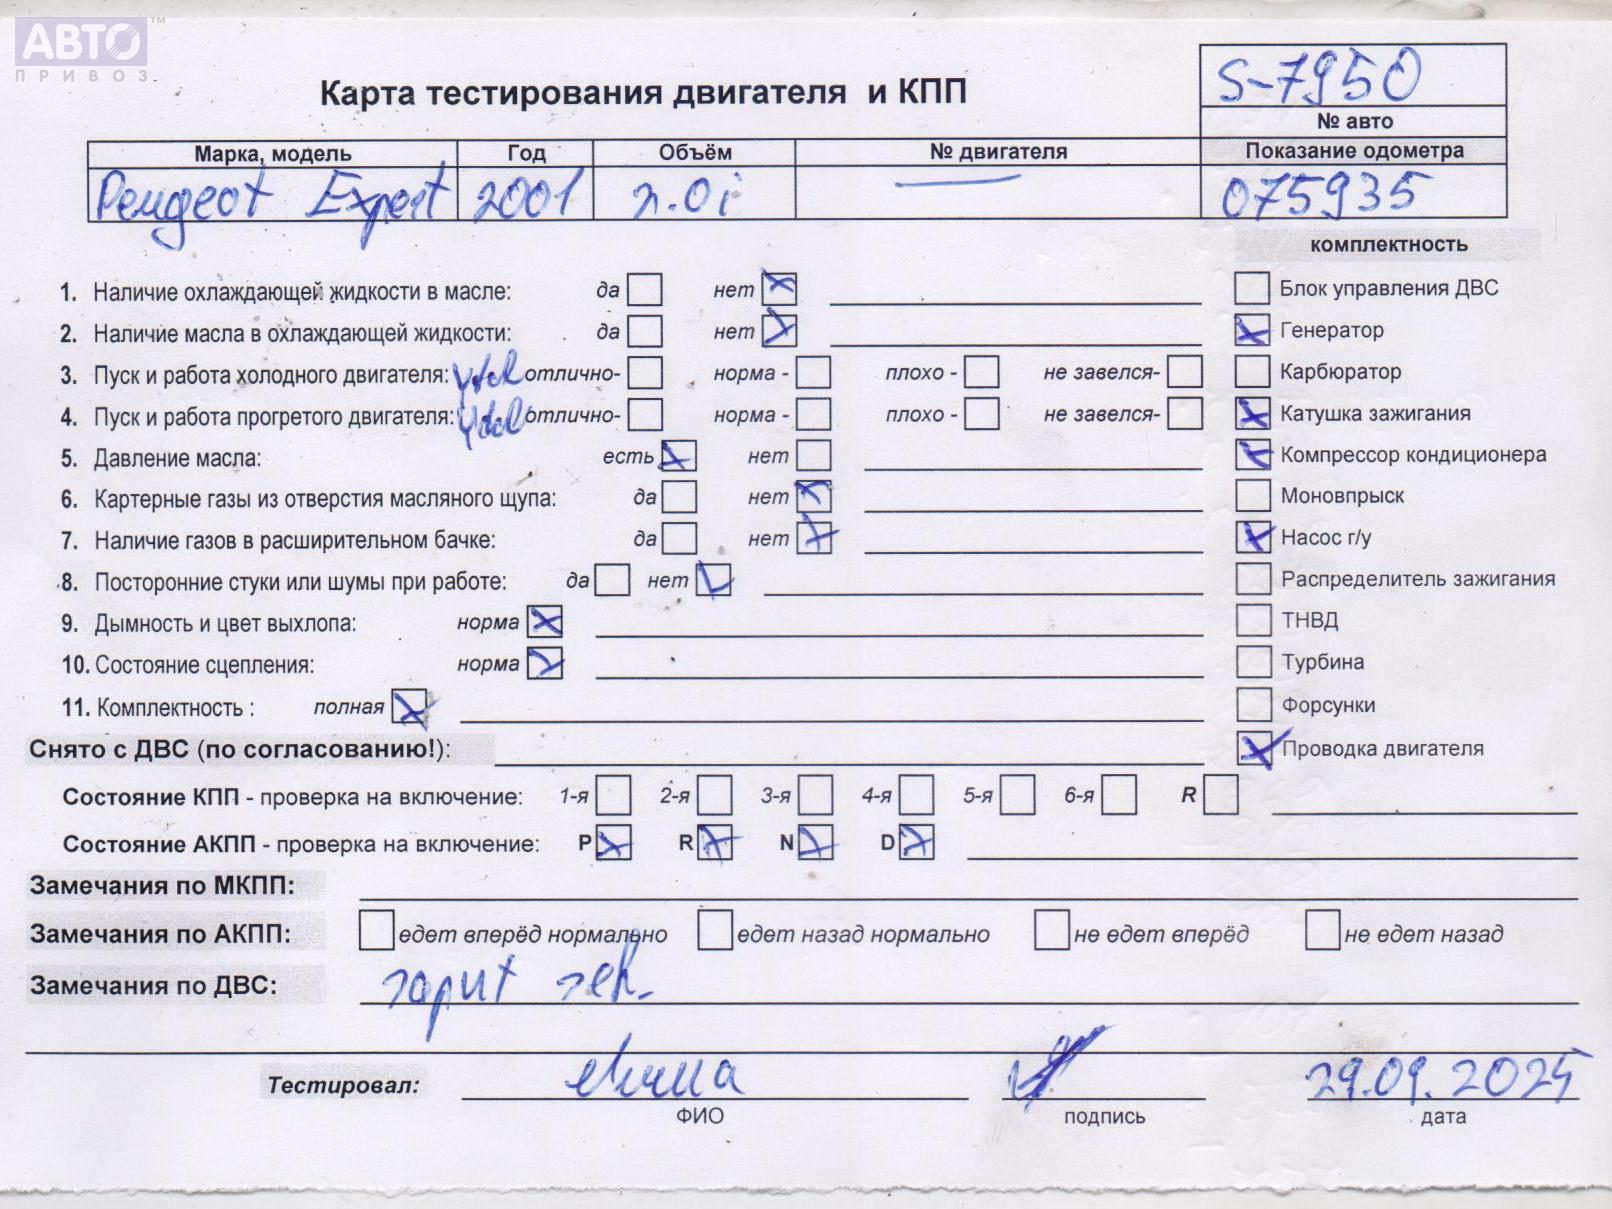 АВТО™
ПРИВОЗ
S-7950
Карта тестирования двигателя и КПП
№ авто
Марка, модель Год Объём № двигателя Показание одометра
Peugeot Expert 2001 2.0i — 075935
комплектность
1. Наличие охлаждающей жидкости в масле: да нет
Блок управления ДВС
2. Наличие масла в охлаждающей жидкости: да нет
Генератор
3. Пуск и работа холодного двигателя: отлично- норма - плохо - не завелся-
Карбюратор
4. Пуск и работа прогретого двигателя: отлично- норма - плохо - не завелся-
Катушка зажигания
5. Давление масла: есть нет
Компрессор кондиционера
6. Картерные газы из отверстия масляного щупа: да нет
Моновпрыск
7. Наличие газов в расширительном бачке: да нет
Насос г/у
8. Посторонние стуки или шумы при работе: да нет
Распределитель зажигания
9. Дымность и цвет выхлопа: норма
ТНВД
10. Состояние сцепления: норма
Турбина
11. Комплектность : полная
Форсунки
Снято с ДВС (по согласованию!):
Проводка двигателя
Состояние КПП - проверка на включение: 1-я 2-я 3-я 4-я 5-я 6-я R
Состояние АКПП - проверка на включение: P R N D
Замечания по МКПП:
Замечания по АКПП: едет вперёд нормально едет назад нормально не едет вперёд не едет назад
Замечания по ДВС: горит
Тестировал: 29.09.2025
ФИО подпись дата